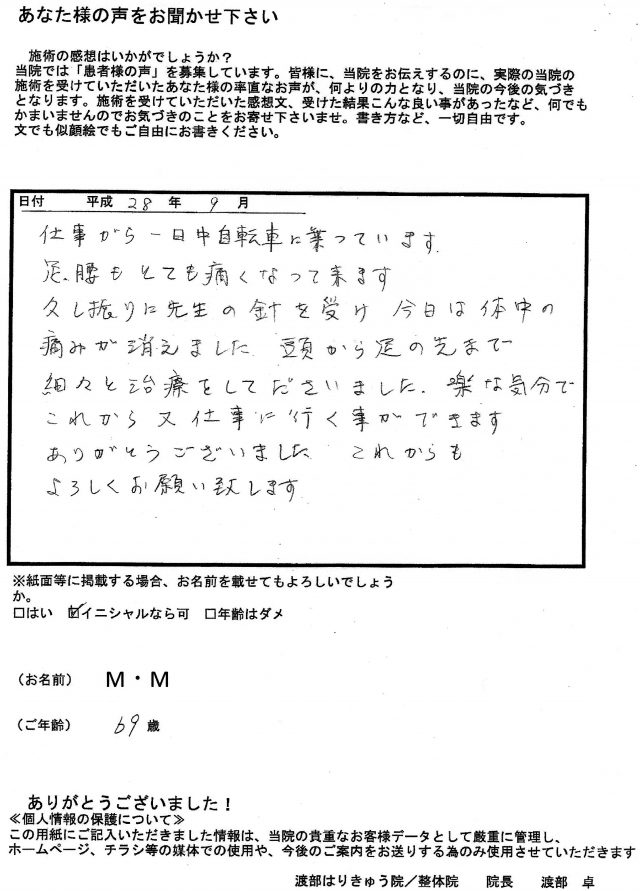 あなた様の声をお聞かせ下さい
施術の感想はいかがでしょうか？
当院では「患者様の声」を募集しています。皆様に、当院をお伝えするのに、実際の当院の
施術を受けていただいたあなた様の率直なお声が、何よりの力となり、当院の今後の気づき
となります。施術を受けていただいた感想文、受けた結果こんな良い事があったなど、何でも
かまいませんのでお気づきのことをお寄せ下さいませ。書き方など、一切自由です。
文でも似顔絵でもご自由にお書きください。
日付 平成 28 年 9 月
仕事がら一日中自転車に乗っています
足、腰もとても痛くなって来ます
久し振りに先生の針を受け 今日は体中の
痛みが消えました 頭から足の先まで
細々と治療をしてくださいました。楽な気分で
これから又仕事に行く事ができます
ありがとうございました これからも
よろしくお願い致します
※紙面等に掲載する場合、お名前を載せてもよろしいでしょう
か。
□はい ☑イニシャルなら可 □年齢はダメ
（お名前） M・M
（ご年齢） 69 歳
ありがとうございました！
≪個人情報の保護について≫
この用紙にご記入いただきました情報は、当院の貴重なお客様データとして厳重に管理し、
ホームページ、チラシ等の媒体での使用や、今後のご案内をお送りする為のみ使用させていただきます
渡部はりきゅう院／整体院 院長 渡部 卓